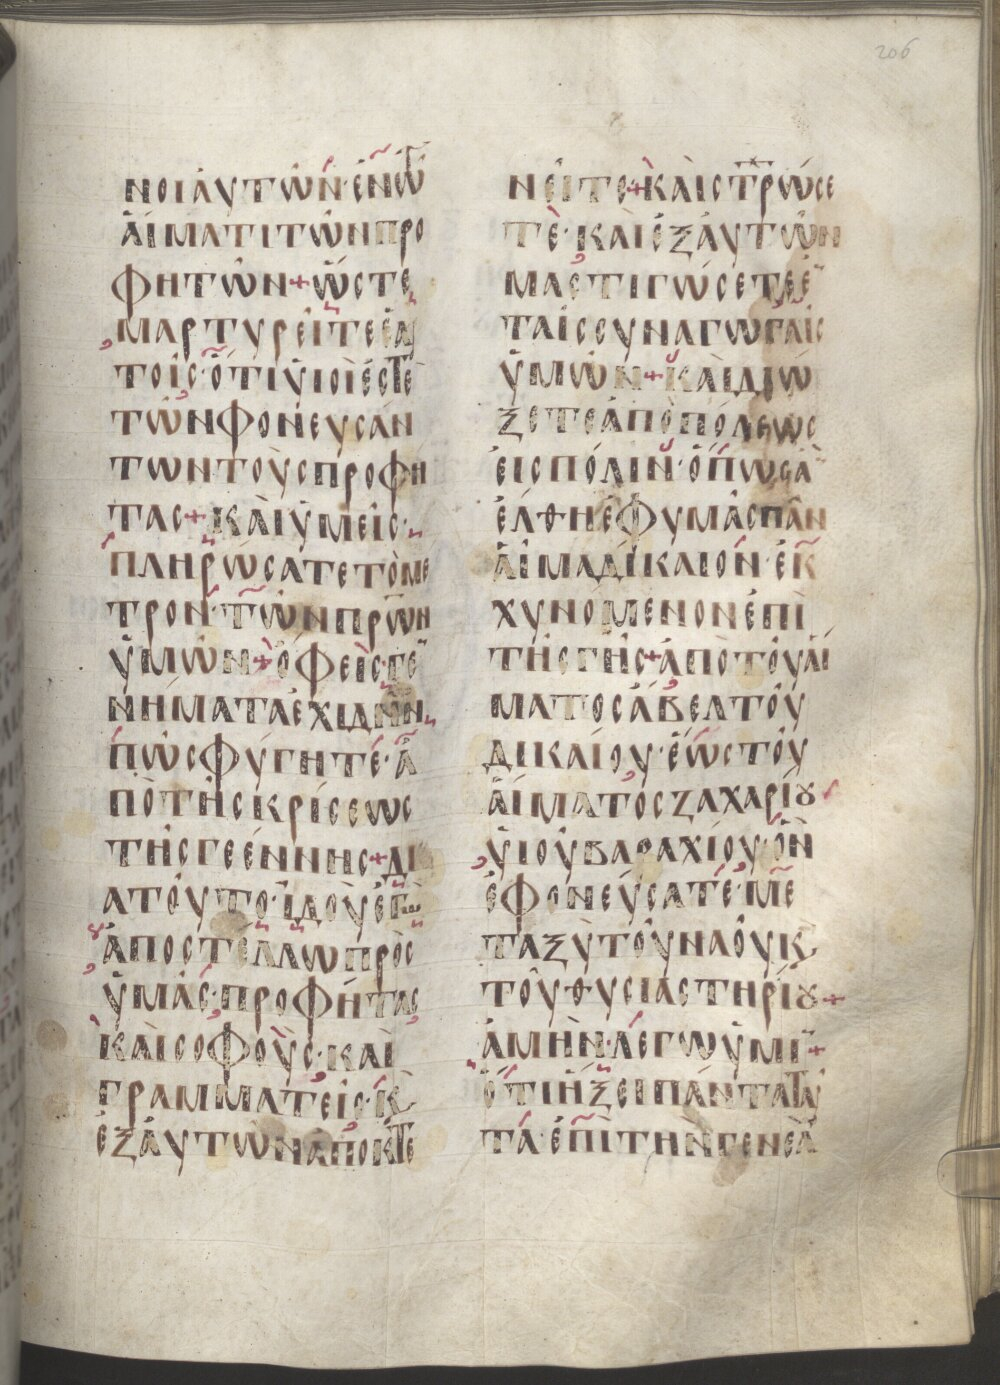 206
ΝΟΙΑΥΤΩΝ·ΕΝΤΩ
ΑΙΜΑΤΙΤΩΝΠΡΟ
ΦΗΤΩΝ+ΩΣΤΕ
ΜΑΡΤΥΡΕΙΤΕΕΑΥ
ΤΟΙϹ·ΟΤΙΥΙΟΙΕϹΤΕ
ΤΩΝΦΟΝΕΥϹΑΝ
ΤΩΝΤΟΥϹΠΡΟΦΗ
ΤΑϹ+ΚΑΙΥΜΕΙϹ·
ΠΛΗΡΩϹΑΤΕΤΟΜΕ
ΤΡΟΝ·ΤΩΝΠΡΩΝ
ΥΜΩΝ+ΟΦΕΙϹ·ΓΕ
ΝΗΜΑΤΑΕΧΙΔΝΩΝ
ΠΩϹΦΥΓΗΤΕ·Α
ΠΟΤΗϹΚΡΙϹΕΩϹ
ΤΗϹΓΕΕΝΝΗϹ+ΔΙ
ΑΤΟΥΤΟ·ΙΔΟΥΕΓΩ
ΑΠΟϹΤΕΛΛΩΠΡΟϹ
ΥΜΑϹ·ΠΡΟΦΗΤΑϹ
ΚΑΙϹΟΦΟΥϹ·ΚΑΙ
ΓΡΑΜΜΑΤΕΙϹ·Κ
ΕΞΑΥΤΩΝΑΠΟΚΤΕ
ΝΕΙΤΕ+ΚΑΙϹΤΡΩϹΕ
ΤΕ·ΚΑΙΕΞΑΥΤΩΝ
ΜΑϹΤΙΓΩϹΕΤΕΕ
ΤΑΙϹϹΥΝΑΓΩΓΑΙϹ
ΥΜΩΝ+ΚΑΙΔΙΩ
ΞΕΤΕΑΠΟΠΟΛΕΩϹ
ΕΙϹΠΟΛΙΝ·ΟΠΩϹΑ
ΕΛΘΗΕΦΥΜΑϹΠΑΝ
ΑΙΜΑΔΙΚΑΙΟΝ·ΕΚ
ΧΥΝΟΜΕΝΟΝΕΠΙ
ΤΗϹΓΗϹ+ΑΠΟΤΟΥΑΙ
ΜΑΤΟϹΑΒΕΛΤΟΥ
ΔΙΚΑΙΟΥ·ΕΩϹΤΟΥ
ΑΙΜΑΤΟϹΖΑΧΑΡΙȢ
ΥΙΟΥΒΑΡΑΧΙΟΥ·ΟΝ
ΕΦΟΝΕΥϹΑΤΕ·ΜΕ
ΤΑΞΥΤΟΥΝΑΟΥΚ
ΤΟΥΘΥϹΙΑϹΤΗΡΙȢ+
ΑΜΗΝ·ΛΕΓΩΥΜΙ+
ΟΤΙΗΞΕΙΠΑΝΤΑΤΑΥ
ΤΑ·ΕΠΙΤΗΝΓΕΝΕΑ